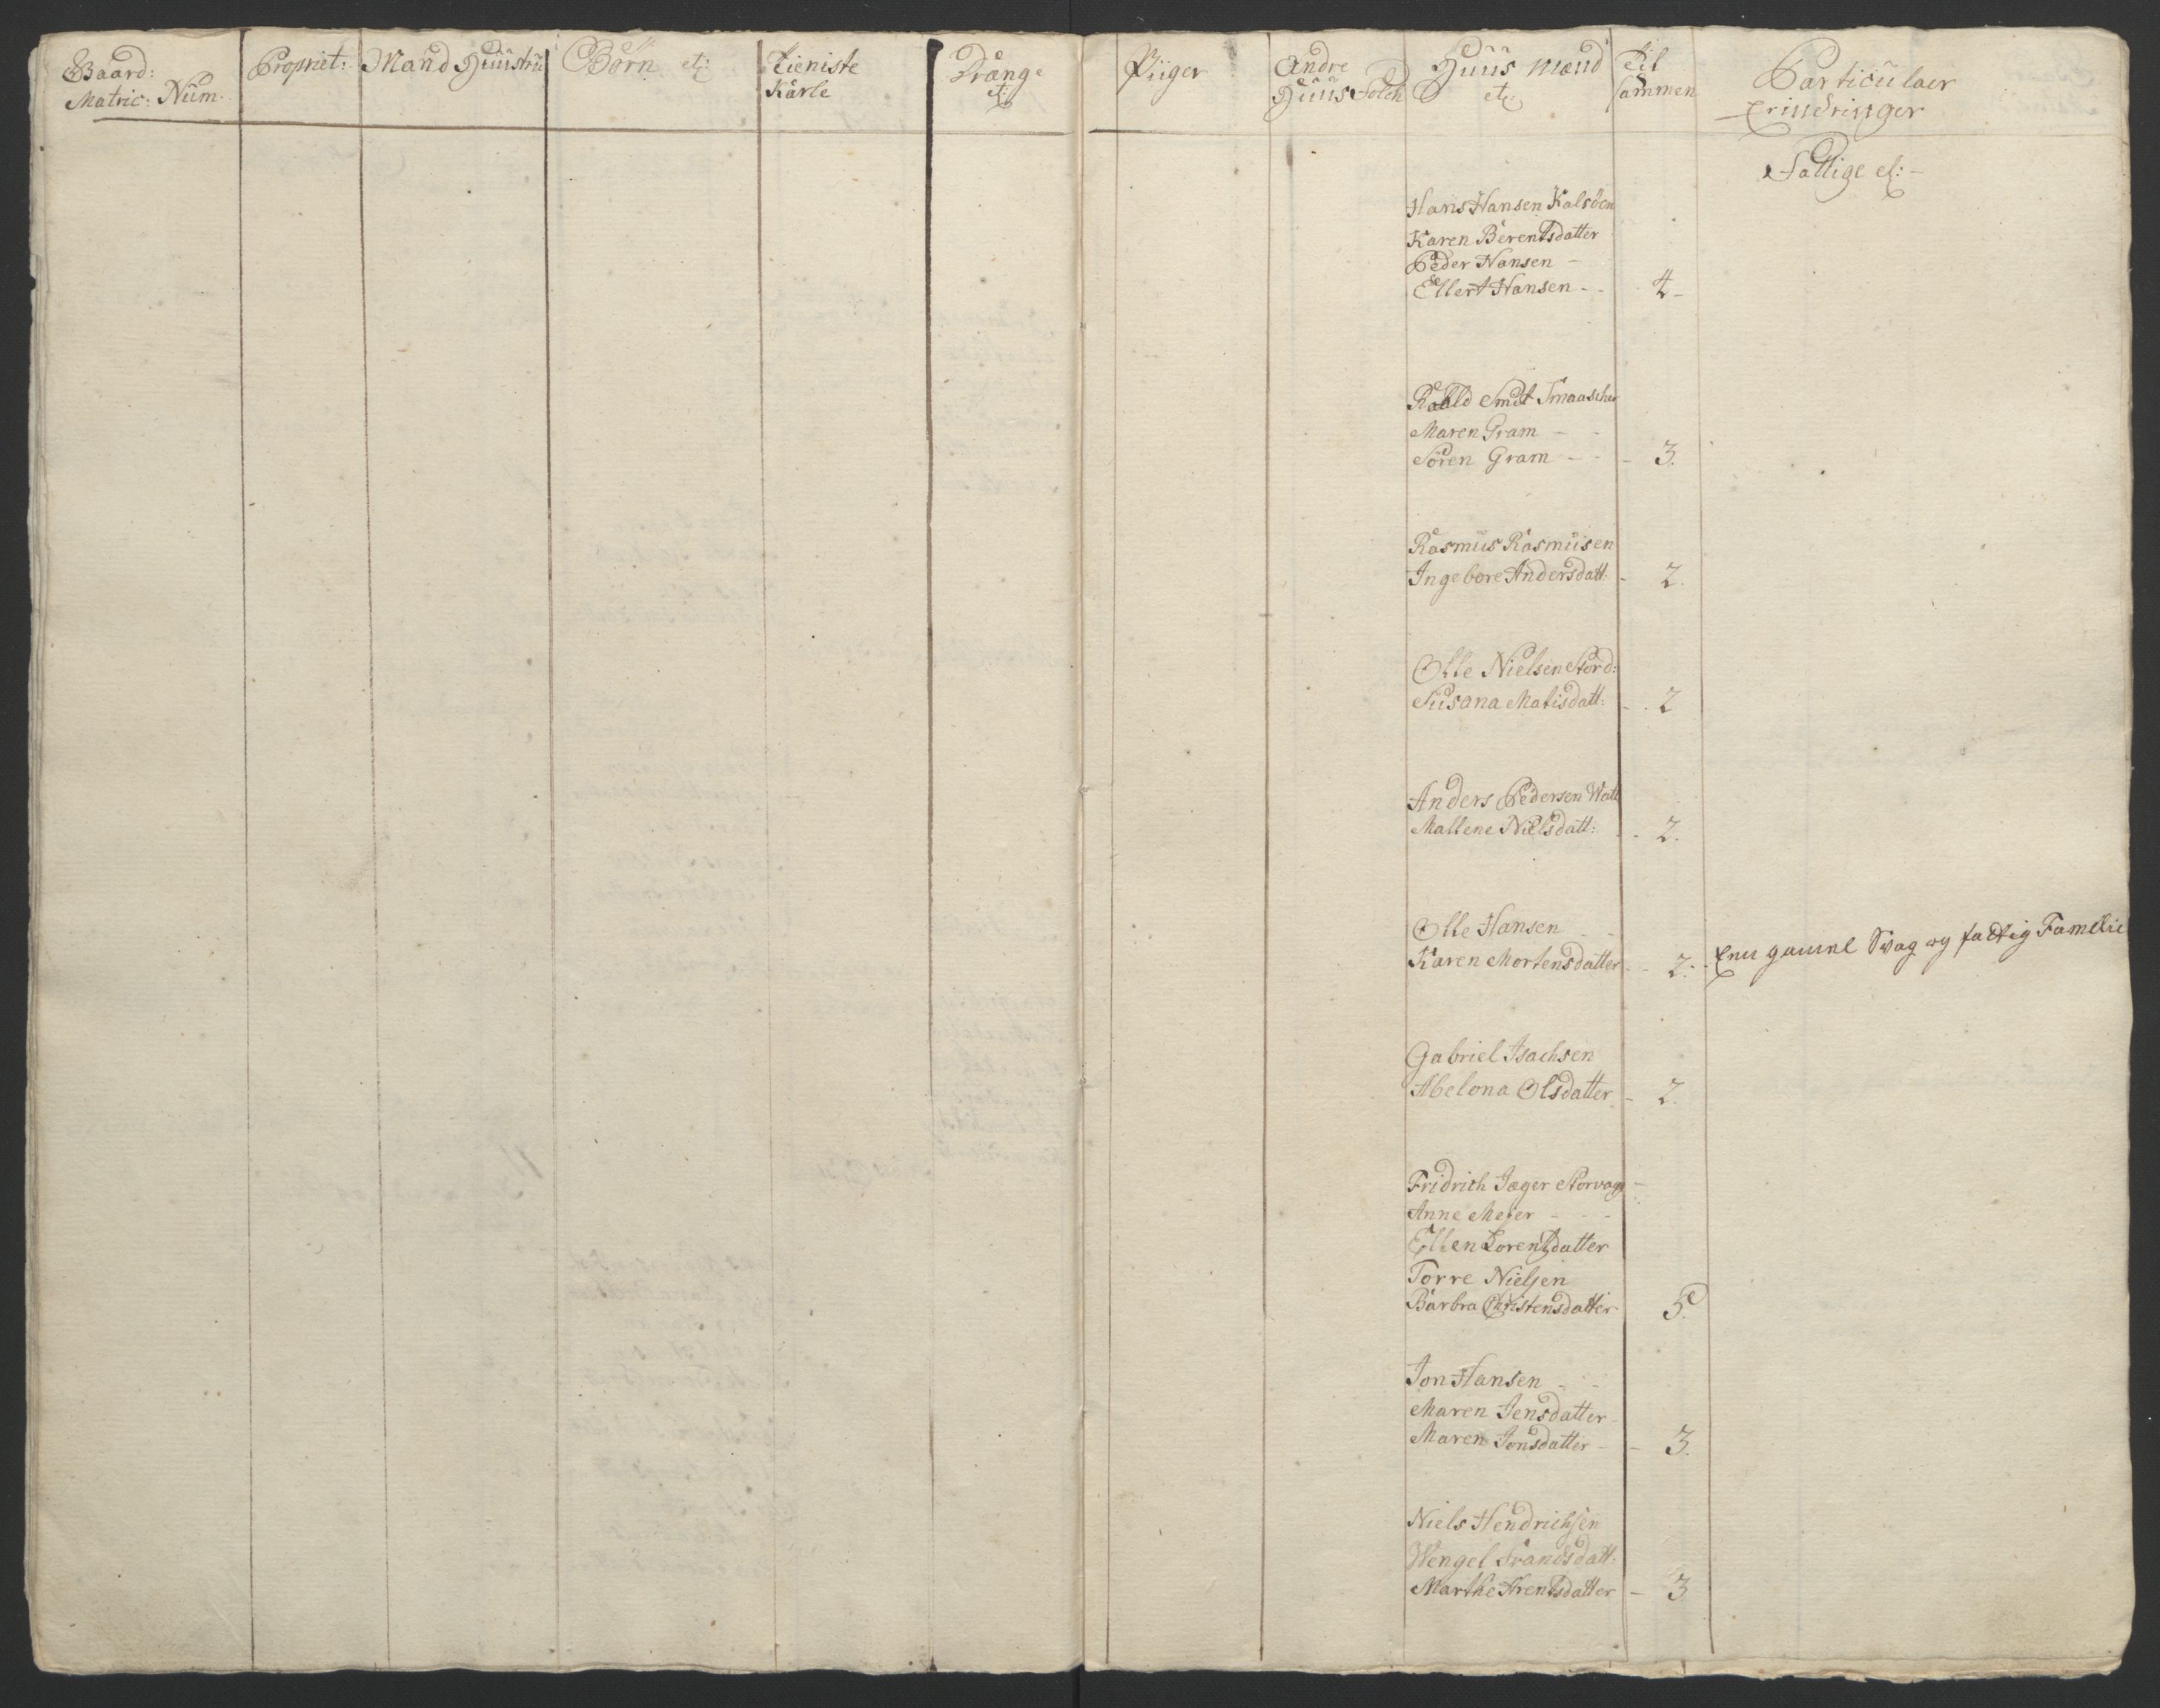 Gaard:
Matric: Num.
Propriet:
Mand
Huustru
Börn etc:
Tieniste
Karle
Dränge
etc:
Piiger
Andre
Huus Folch
Huus Mænd
etc:
Til
sammen
Particulaer
Erindringer
Fattige etc: -
Hans Hansen Kalsöen
Karen Berentsdatter
Peder Hansen -
Ellert Hansen - - 4 -
Smit
Maren Gram - -
Sören Gram - - - 3.
Rasmus Rasmusen
Ingebore Andersdatt: - 2.
Olle Nielsen Stord:
Susana Matisdatt: - . 2
Anders Pedersen
Mallene Nielsdatt: - - 2.
Olle Hansen - -
Karen Mortensdatter - - 2: - Een gamel Svag og fattig Famelie
Gabriel Isachsen
Abelona Olsdatter - 2.
Fridrich Jæger Storvage -
Anne Meier - - -
Ellen Lorentzdatter
Torre Nielsen
Barbra Christensdatter 5.
Jon Hansen - -
Maren Jensdatter
Maren Jonsdatter - - 3.
Niels Hendrichsen
Wengel Frandsdatt:
Marthe Arentsdatter - 3